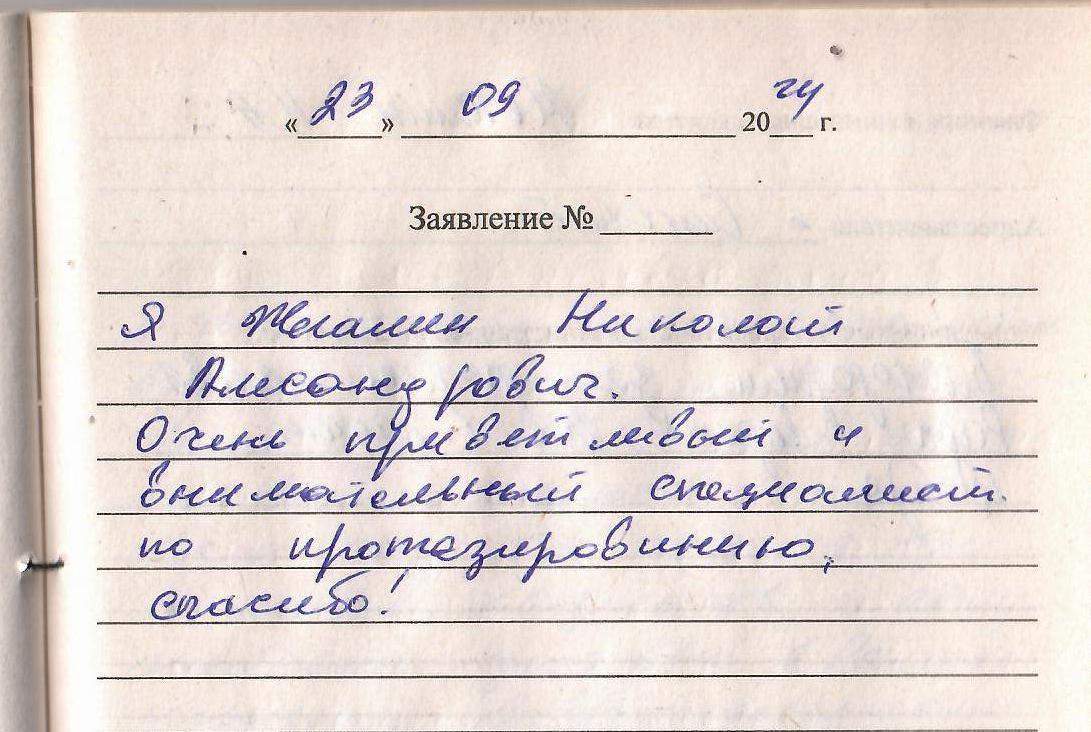 « 23 » 09 2024 г.
Заявление №
Я Николай
Алесандрович.
Очень приветливый и
внимательный специалист
по протезированию,
спасибо!